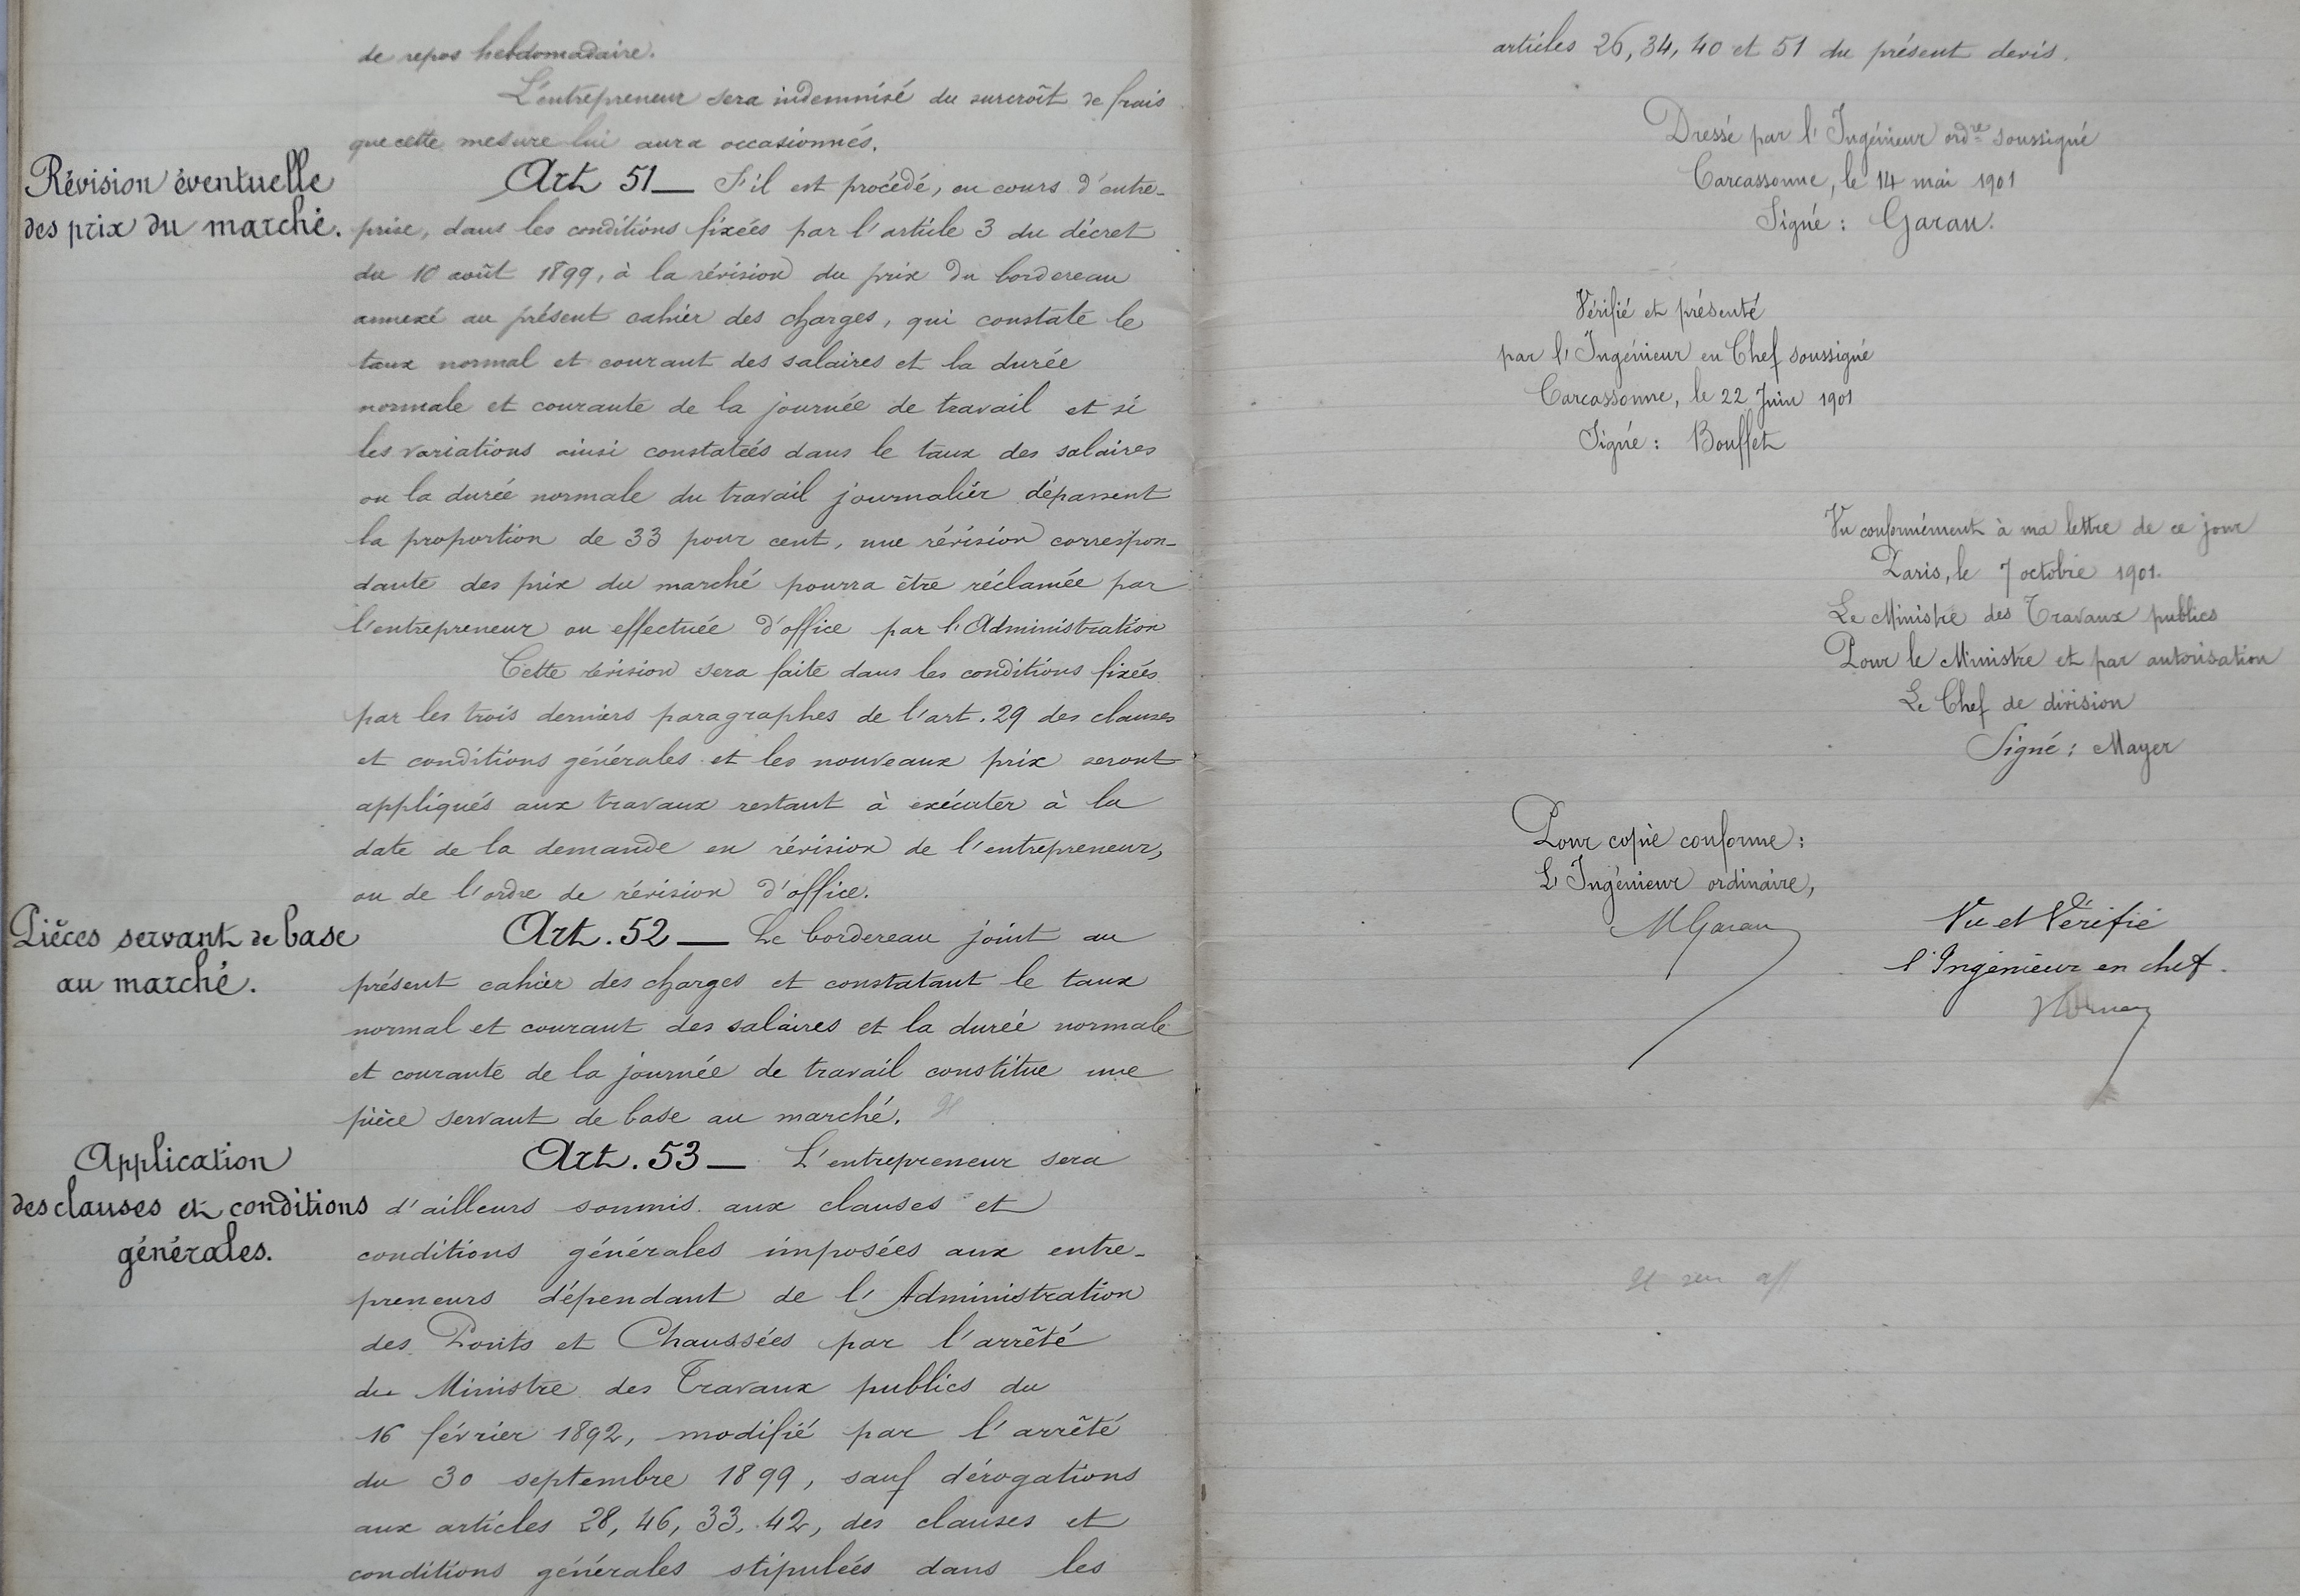 de repos hebdomadaire.
L'entrepreneur sera indemnisé du surcroît de frais
que cette mesure lui aura occasionnés.
Révision éventuelle
des prix du marché.
Art 51 — S'il est procédé, en cours d'entre-
prise, dans les conditions fixées par l'article 3 du décret
du 10 août 1899, à la révision du prix du bordereau
annexé au présent cahier des charges, qui constate le
taux normal et courant des salaires et la durée
normale et courante de la journée de travail et si
les variations ainsi constatées dans le taux des salaires
ou la durée normale du travail journalier dépassent
la proportion de 33 pour cent, une révision correspon-
dante des prix du marché pourra être réclamée par
l'entrepreneur ou effectuée d'office par l'Administration
Cette révision sera faite dans les conditions fixées
par les trois derniers paragraphes de l'art. 29 des clauses
et conditions générales et les nouveaux prix seront
appliqués aux travaux restant à exécuter à la
date de la demande en révision de l'entrepreneur,
ou de l'ordre de révision d'office.
Pièces servant de base
au marché.
Art. 52 — Le bordereau joint au
présent cahier des charges et constatant le taux
normal et courant des salaires et la durée normale
et courante de la journée de travail constitue une
pièce servant de base au marché.
Application
des clauses et conditions
générales.
Art. 53 — L'entrepreneur sera
d'ailleurs soumis aux clauses et
conditions générales imposées aux entre-
preneurs dépendant de l'Administration
des Ponts et Chaussées par l'arrêté
du Ministre des Travaux publics du
16 février 1892, modifié par l'arrêté
du 30 septembre 1899, sauf dérogations
aux articles 28, 46, 33, 42, des clauses et
conditions générales stipulées dans les
articles 26, 34, 40 et 51 du présent devis.
Dressé par l'Ingénieur ord.re soussigné
Carcassonne, le 14 mai 1901
Signé : Garau.
Vérifié et présenté
par l'Ingénieur en Chef soussigné
Carcassonne, le 22 Juin 1901
Signé : Bouffet
Vu conformément à ma lettre de ce jour
Paris, le 7 octobre 1901.
Le Ministre des Travaux publics
Pour le Ministre et par autorisation
Le Chef de division
Signé : Mayer
Pour copie conforme :
L'Ingénieur ordinaire,
MGarau
Vu et Vérifié
l'Ingénieur en chef.